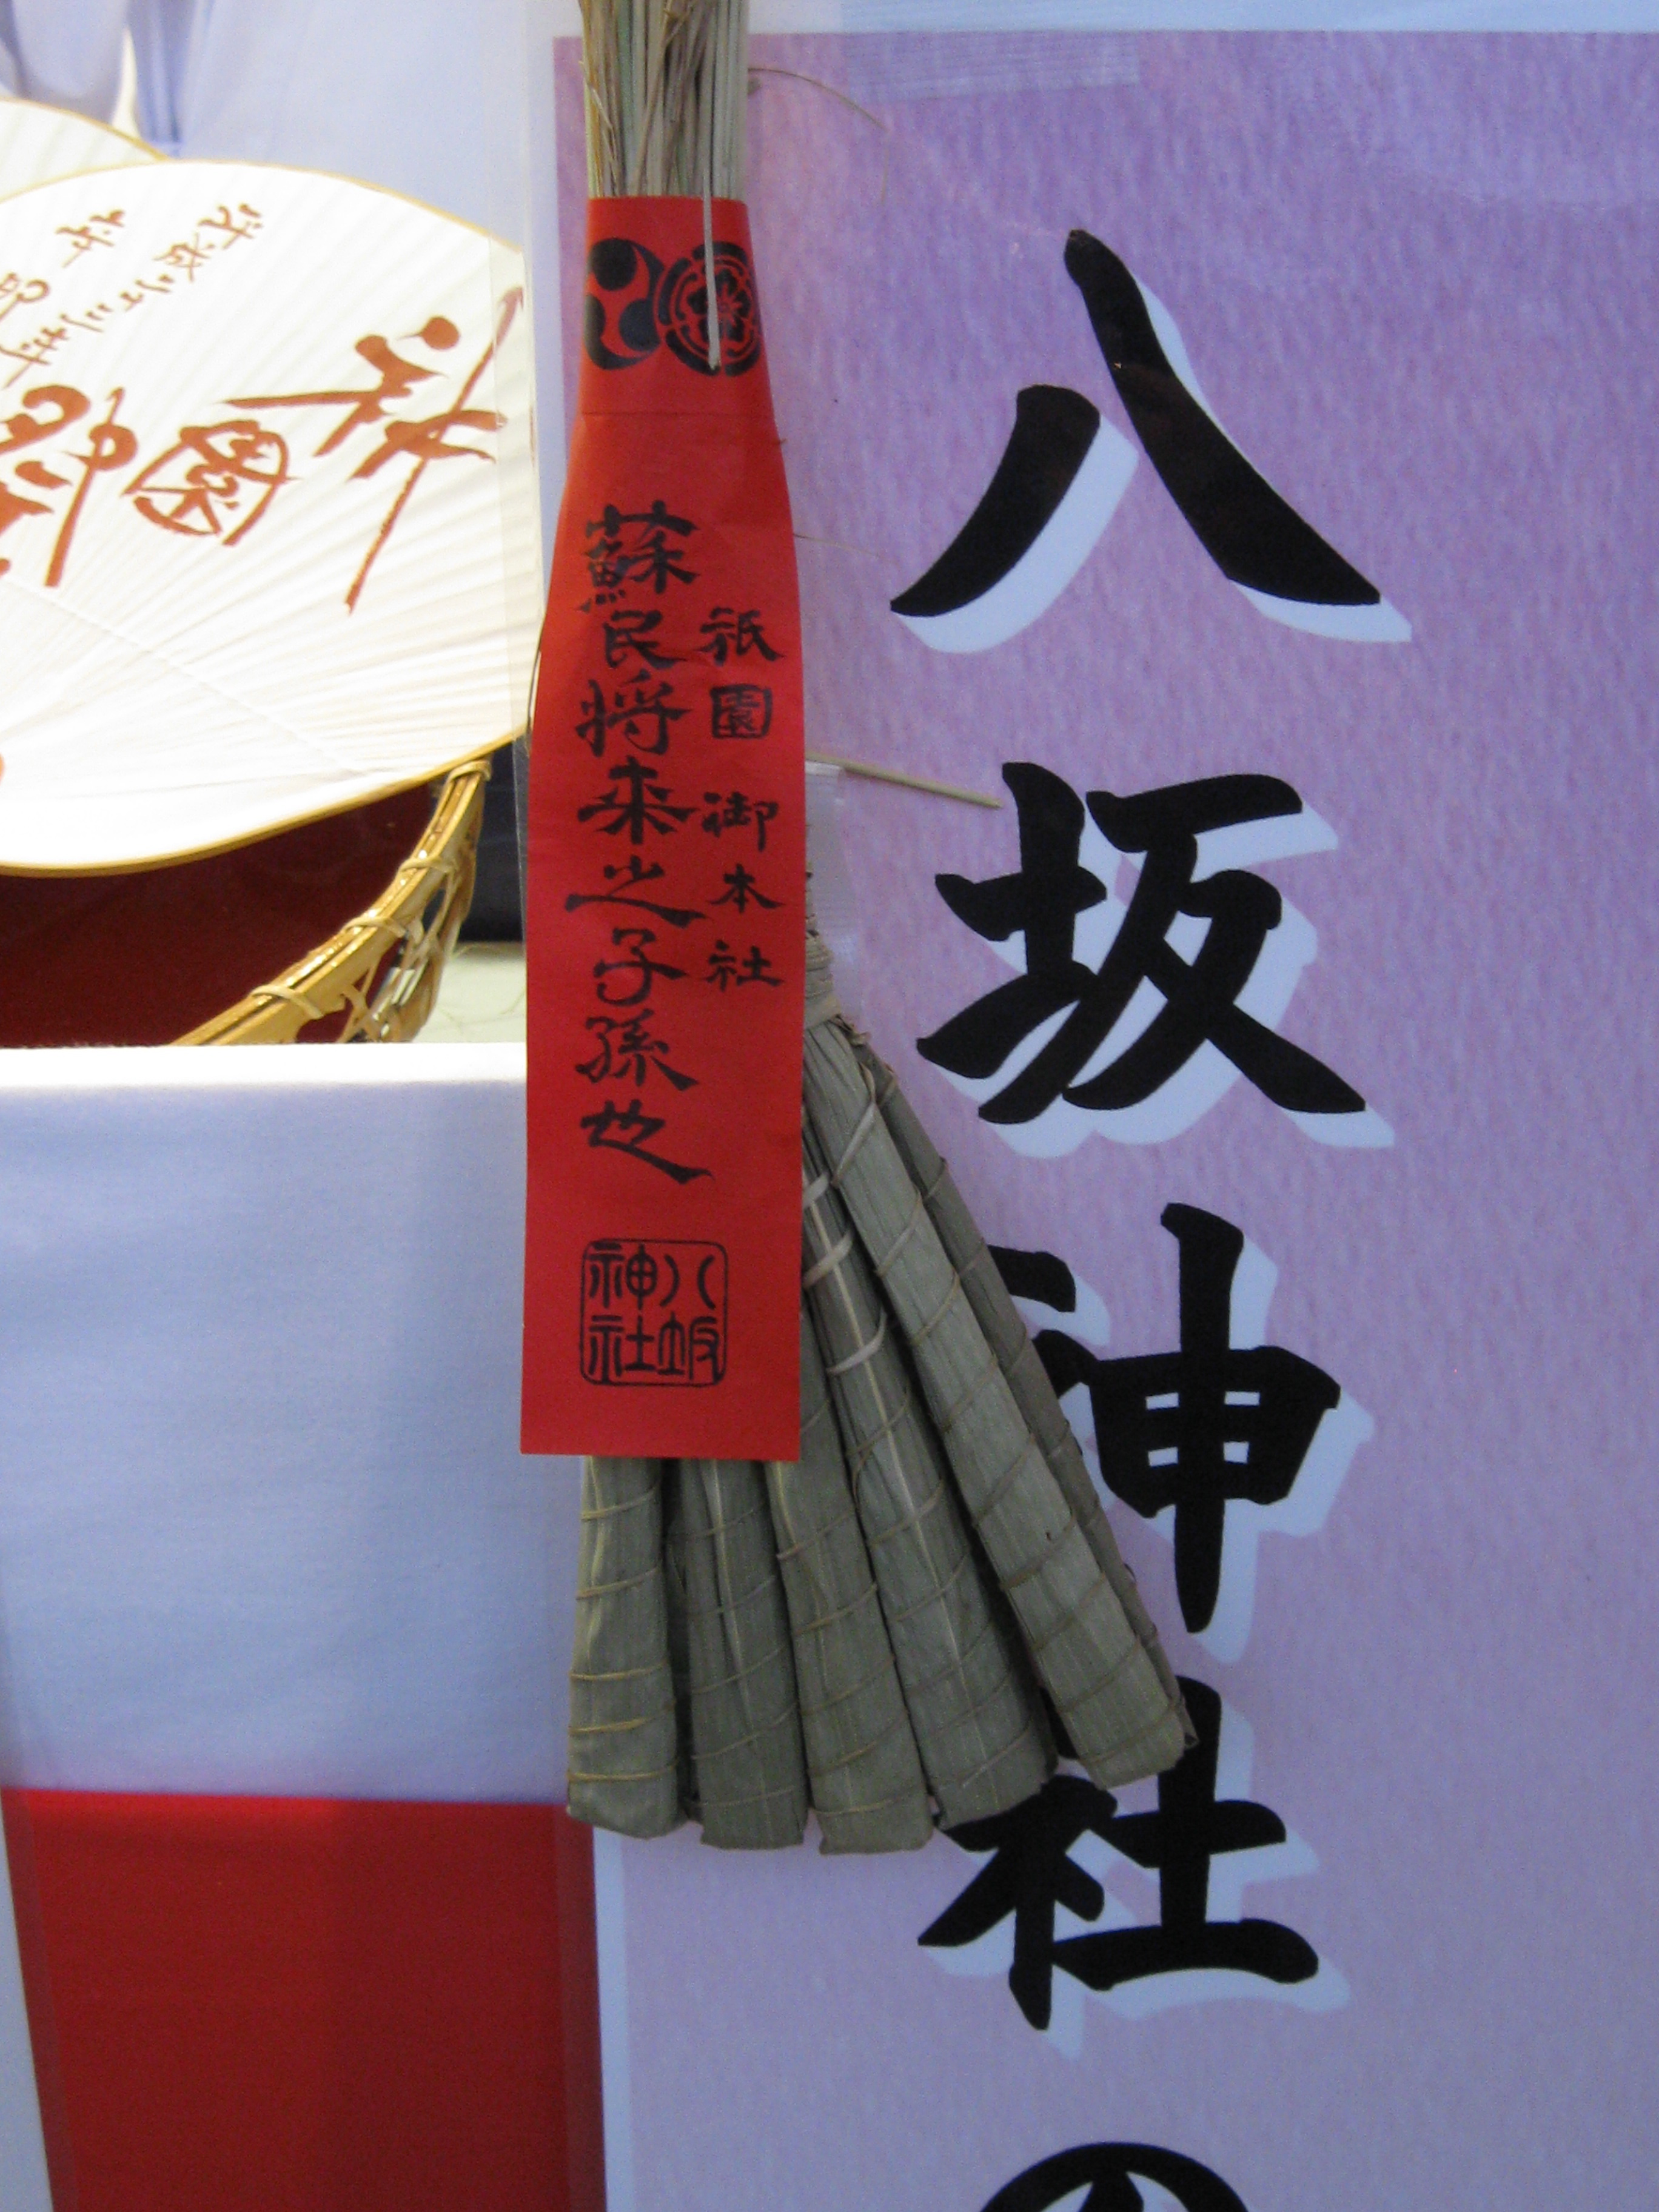 八坂神社の
祇園御本社
蘇民将来之子孫也
八坂
神社
祇園
平成二三年